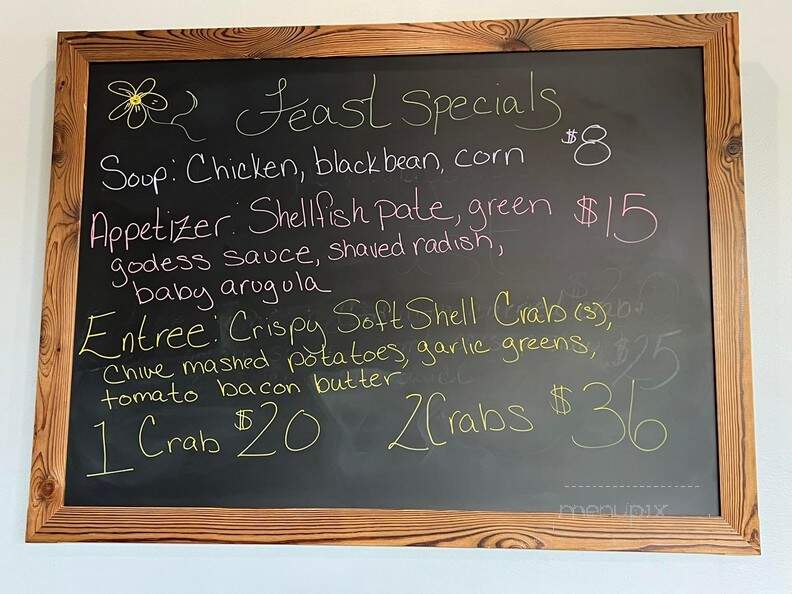 Feast Specials
Soup: Chicken, black bean, corn $8
Appetizer: Shellfish pate, green $15
godess sauce, shaved radish,
baby arugola
Entree: Crispy Soft Shell Crab(s),
Chive mashed potatoes, garlic greens,
tomato bacon butter
1 Crab $20 2 Crabs $36
menupix